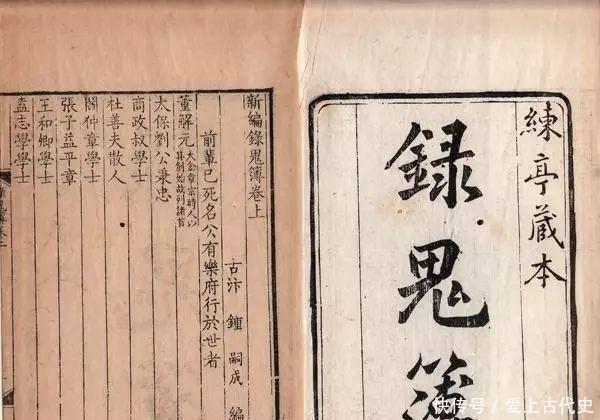 練亭藏本
錄鬼簿
新編錄鬼簿卷上
古汴 鍾 嗣成 編
前輩已死名公有樂府行於世者
董解元 大金章宗時人以其創始故列諸首
太保劉公秉忠
商政叔學士
杜善夫散人
閻仲章學士
張子益平章
王和卿學士
盍志學學士
快传号 / 爱上古代史